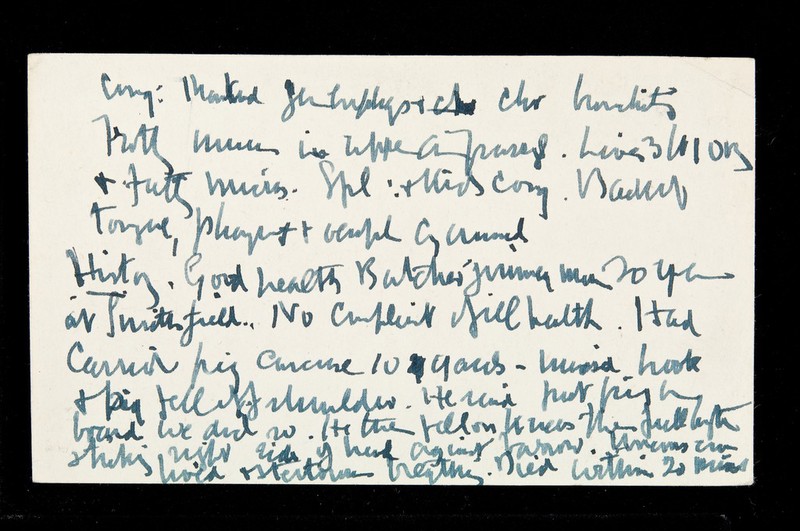 Cong: Marked Emphys + Chr bronchitis
Frothy mucus in upper air passages. Liver 3lb 10 oz
+ fatty micros. Spl: + Kids Cong. Bladder
Tongue, pharynx + oesoph Cyanosed
History. Good health Butcher's journeyman 20 years
at Smithfield. No complaint of ill health. Had
Carried pig carcase 10 yards - missed hook
+ pig fell off shoulder. He said put pig on
board we did so. He then fell on knees then full length
striking right side of head against barrow. Unconscious
livid + stertorous breathing. Died within 20 mins